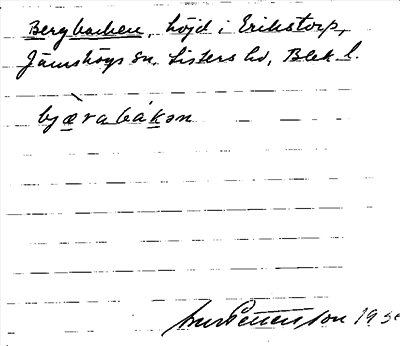 Bergbacken, höjd i Erikstorp,
Jämshögs sn, Listers hd, Blek. l.
bjæ̀rabákən
Pettersson 19